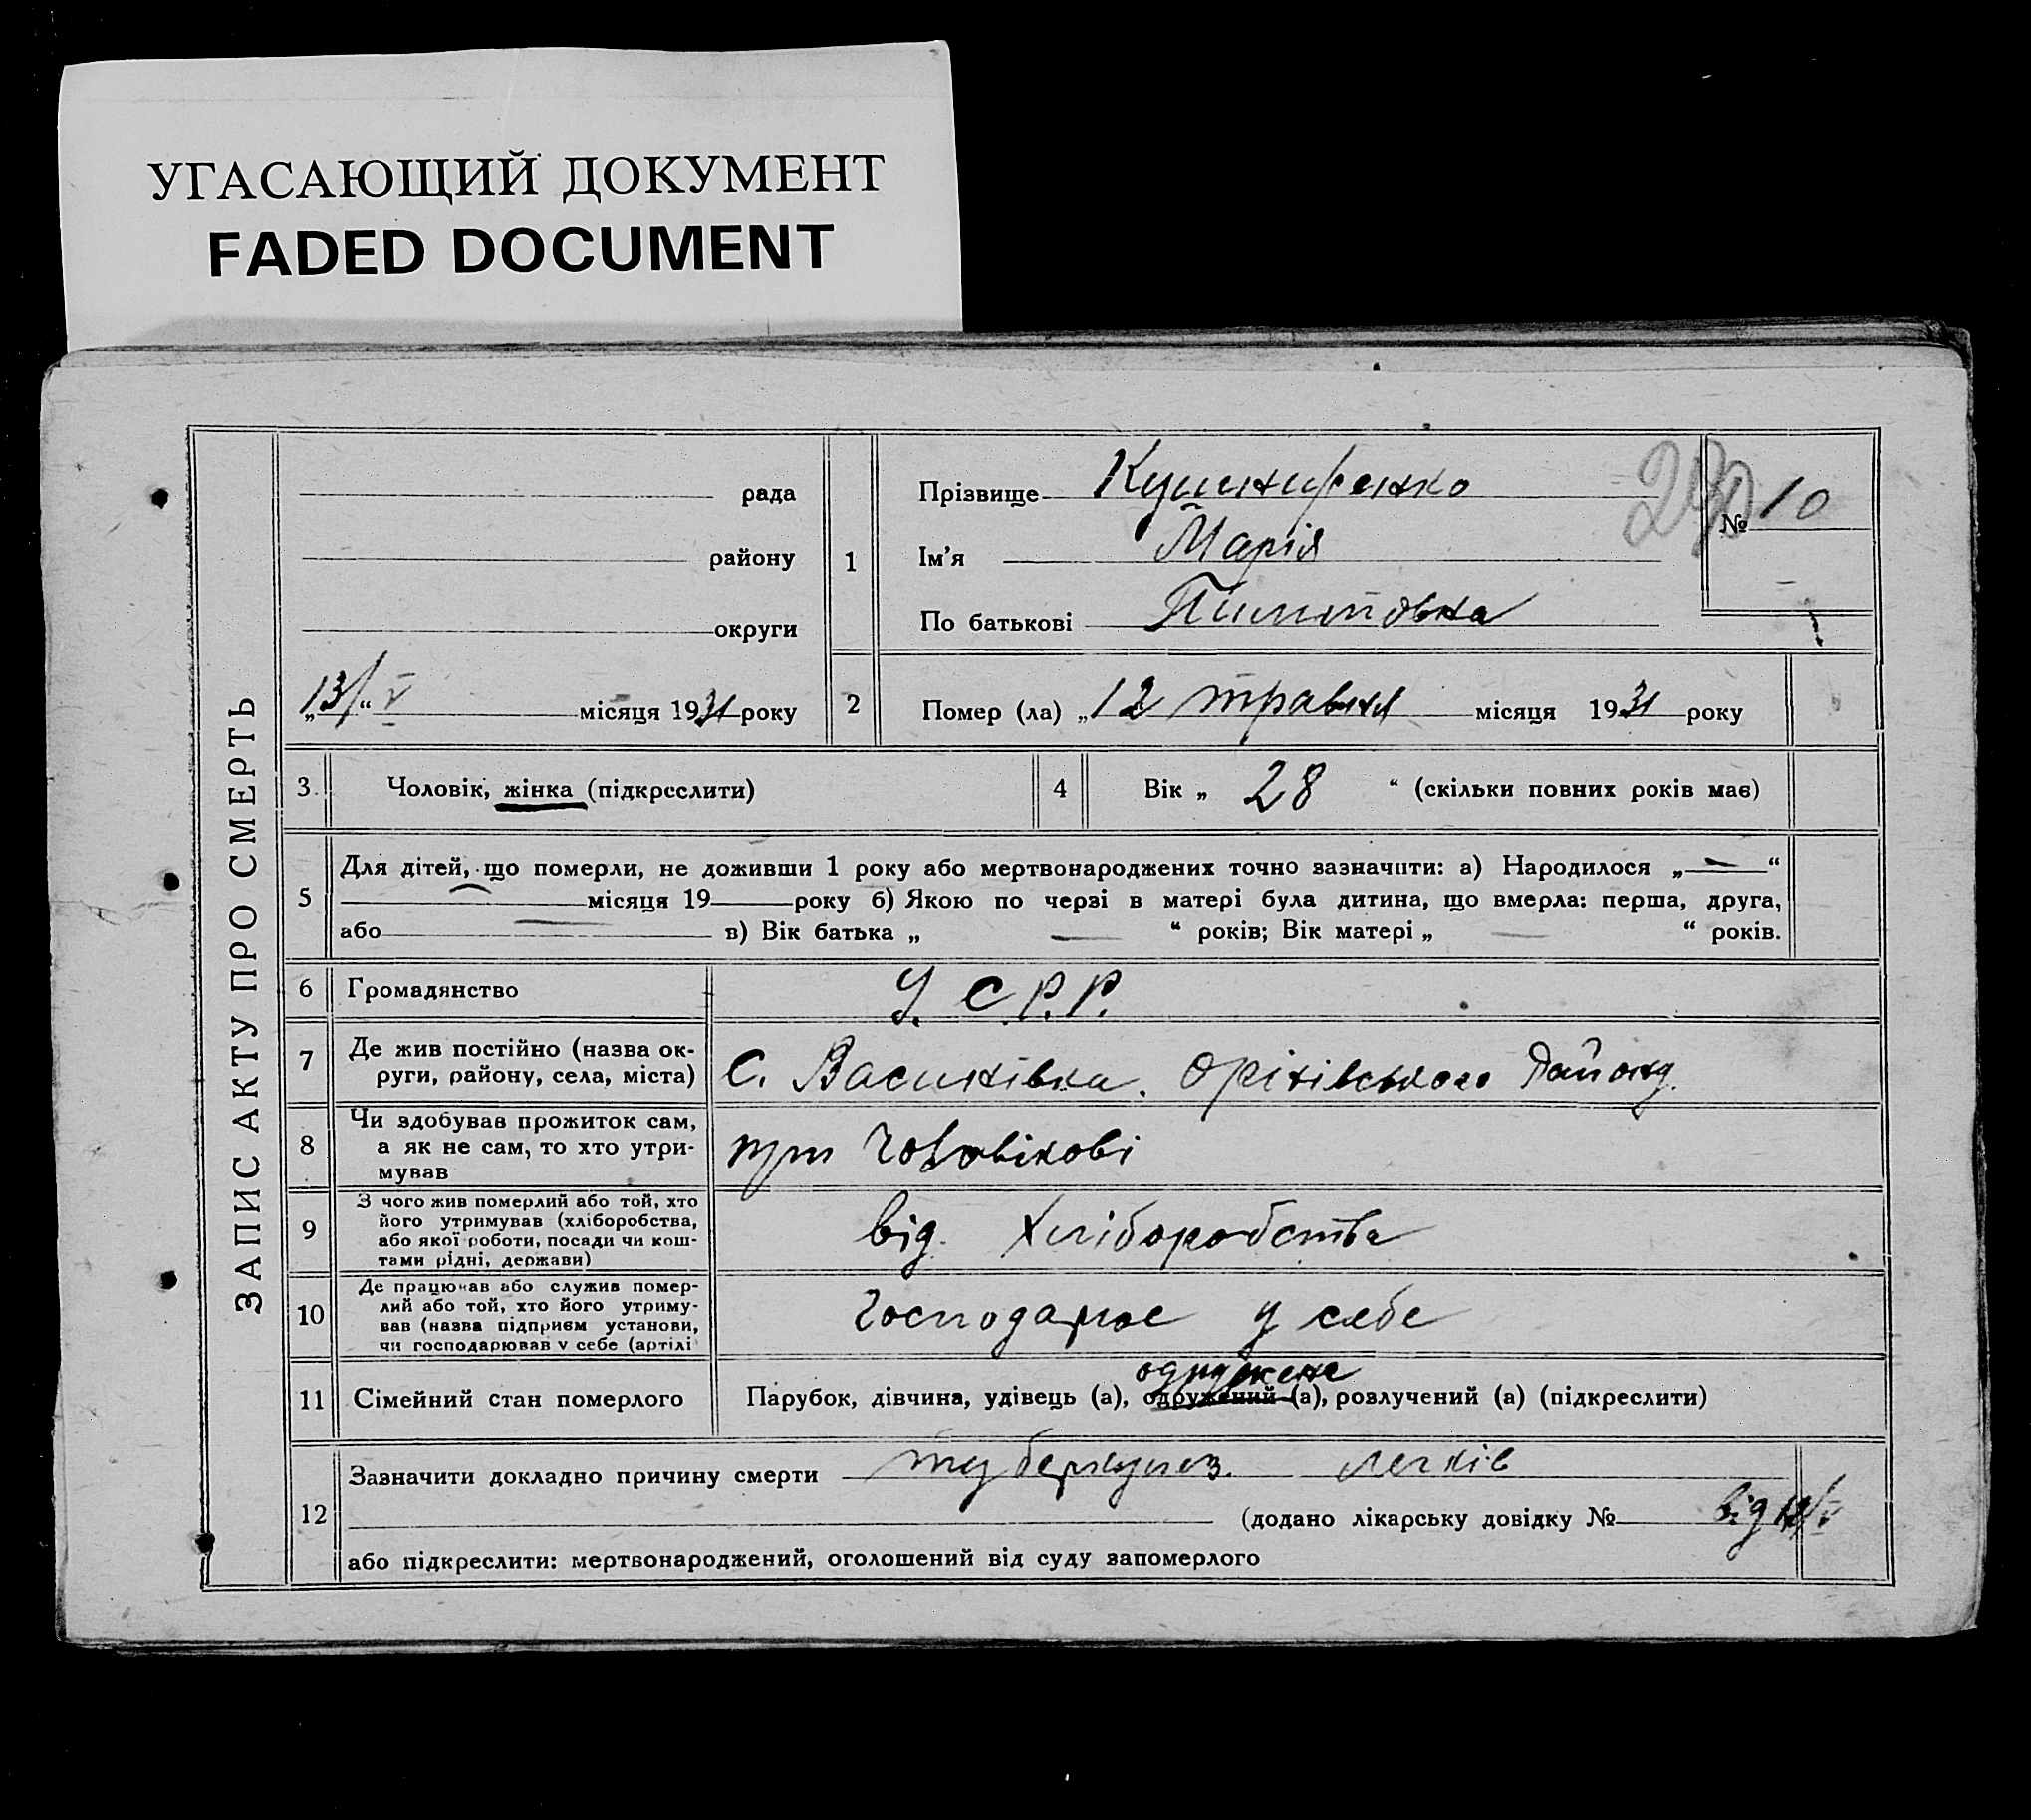 УГАСАЮЩИЙ ДОКУМЕНТ
FADED DOCUMENT
ЗАПИС АКТУ ПРО СМЕРТЬ
рада
району
округи
„13/“ V місяця 1931 року
1
Прізвище Кушниренко
Ім’я Марія
По батькові
№ 10
2
Помер (ла) „12 травня місяця 1931 року
3
Чоловік, жінка (підкреслити)
4
Вік „ 28 “ (скільки повних років має)
5
Для дітей, що померли, не доживши 1 року або мертвонароджених точно зазначити: а) Народилося „ — “
місяця 19 року б) Якою по черзі в матері була дитина, що вмерла: перша, друга,
або — в) Вік батька „ — “ років; Вік матері „ — “ років.
6
Громадянство
У. С.Р.Р.
7
Де жив постійно (назва ок-
руги, району, села, міста)
С. Василівка. Оріхівського Району.
8
Чи здобував прожиток сам,
а як не сам, то хто утри-
мував
при чоловікові
9
З чого жив померлий або той, хто
його утримував (хліборобства,
або якої роботи, посади чи кош-
тами рідні, держави)
від. хліборобства
10
Де працював або служив помер-
лий або той, хто його утриму-
вав (назва підприєм установи,
чи господарював у себе (артілі
господарює у себе
11
Сімейний стан померлого
одружена
Парубок, дівчина, удівець (а), одружений (а), розлучений (а) (підкреслити)
12
Зазначити докладно причину смерти туберкульоз. легків
(додано лікарську довідку № від 12/V
або підкреслити: мертвонароджений, оголошений від суду запомерлого